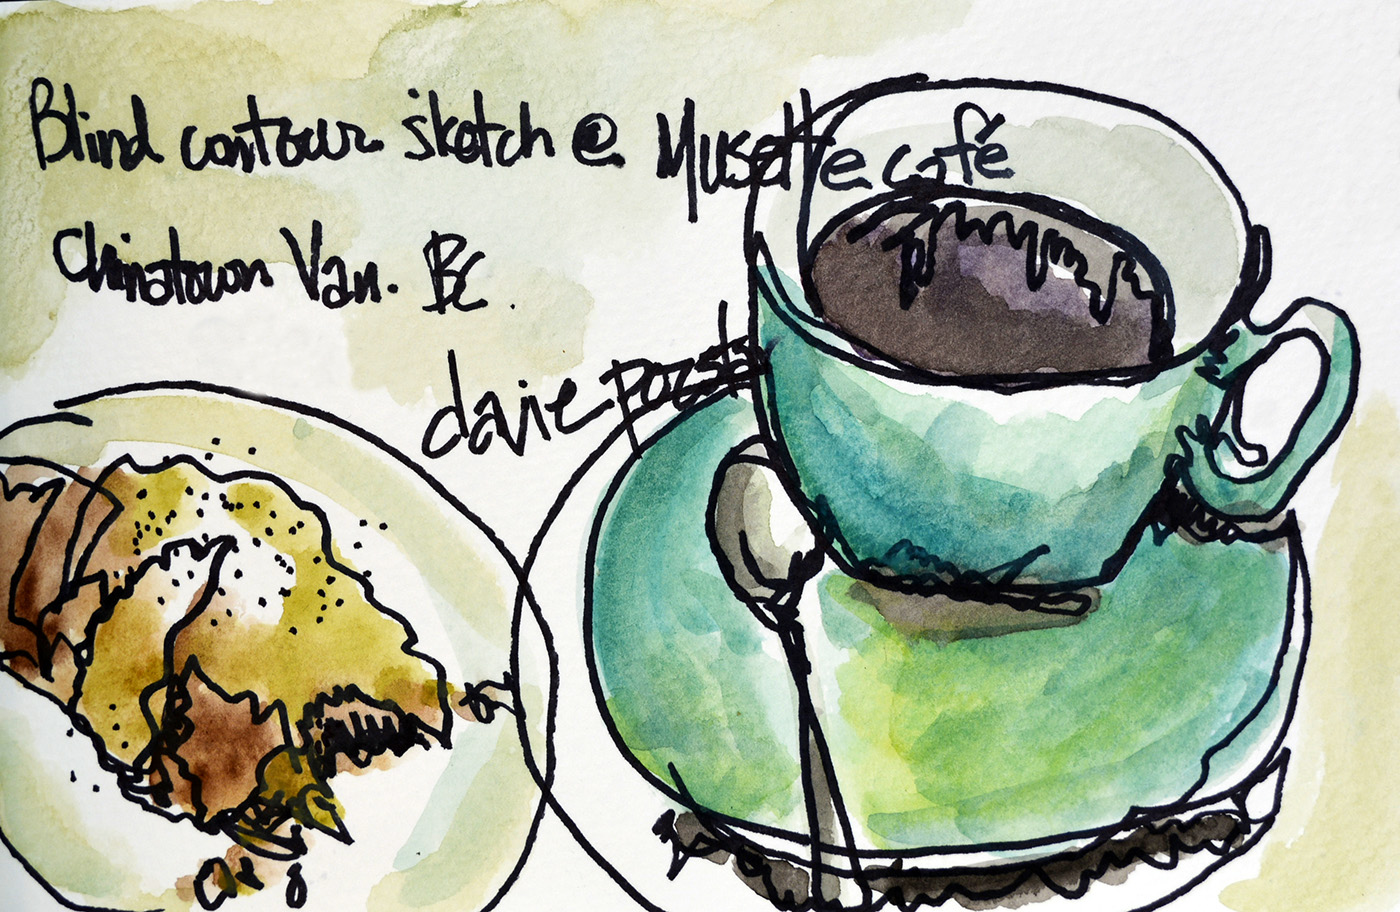 Blind contour sketch @ Musette café
Chinatown Van. BC.
davie